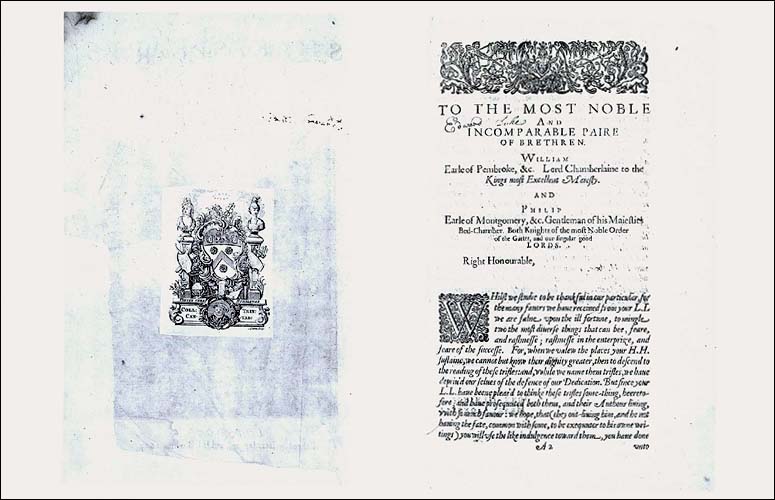 COLL:
CAN:
TRIN:
TO THE MOST NOBLE
AND
INCOMPARABLE PAIRE
OF BRETHREN.
WILLIAM
Earle of Pembroke, &c. Lord Chamberlaine to the
Kings most Excellent Maiesty.
AND
PHILIP
Earle of Montgomery, &c. Gentleman of his Maiesties
Bed-Chamber. Both Knights of the most Noble Order
of the Garter, and our singular good
LORDS.
Right Honourable,
WHilst we studie to be thankful in our particular, for
the many fauors we haue receiued from your L.L
we are falne vpon the ill fortune, to mingle
two the most diuerse things that can bee, feare,
and rashnesse; rashnesse in the enterprize, and
feare of the successe. For, when we valew the places your H.H.
sustaine, we cannot but know their dignity greater, then to descend to
the reading of these trifles: and, while we name them trifles, we haue
depriu'd our selues of the defence of our Dedication. But since your
L.L. haue beene pleas'd to thinke these trifles some-thing, heereto-
fore; and haue prosequuted both them, and their Authour liuing,
with so much fauour: we hope, that (they out-liuing him, and he not
hauing the fate, common with some, to be exequutor to his owne wri-
tings) you will vse the like indulgence toward them, you haue done
A2 vnto